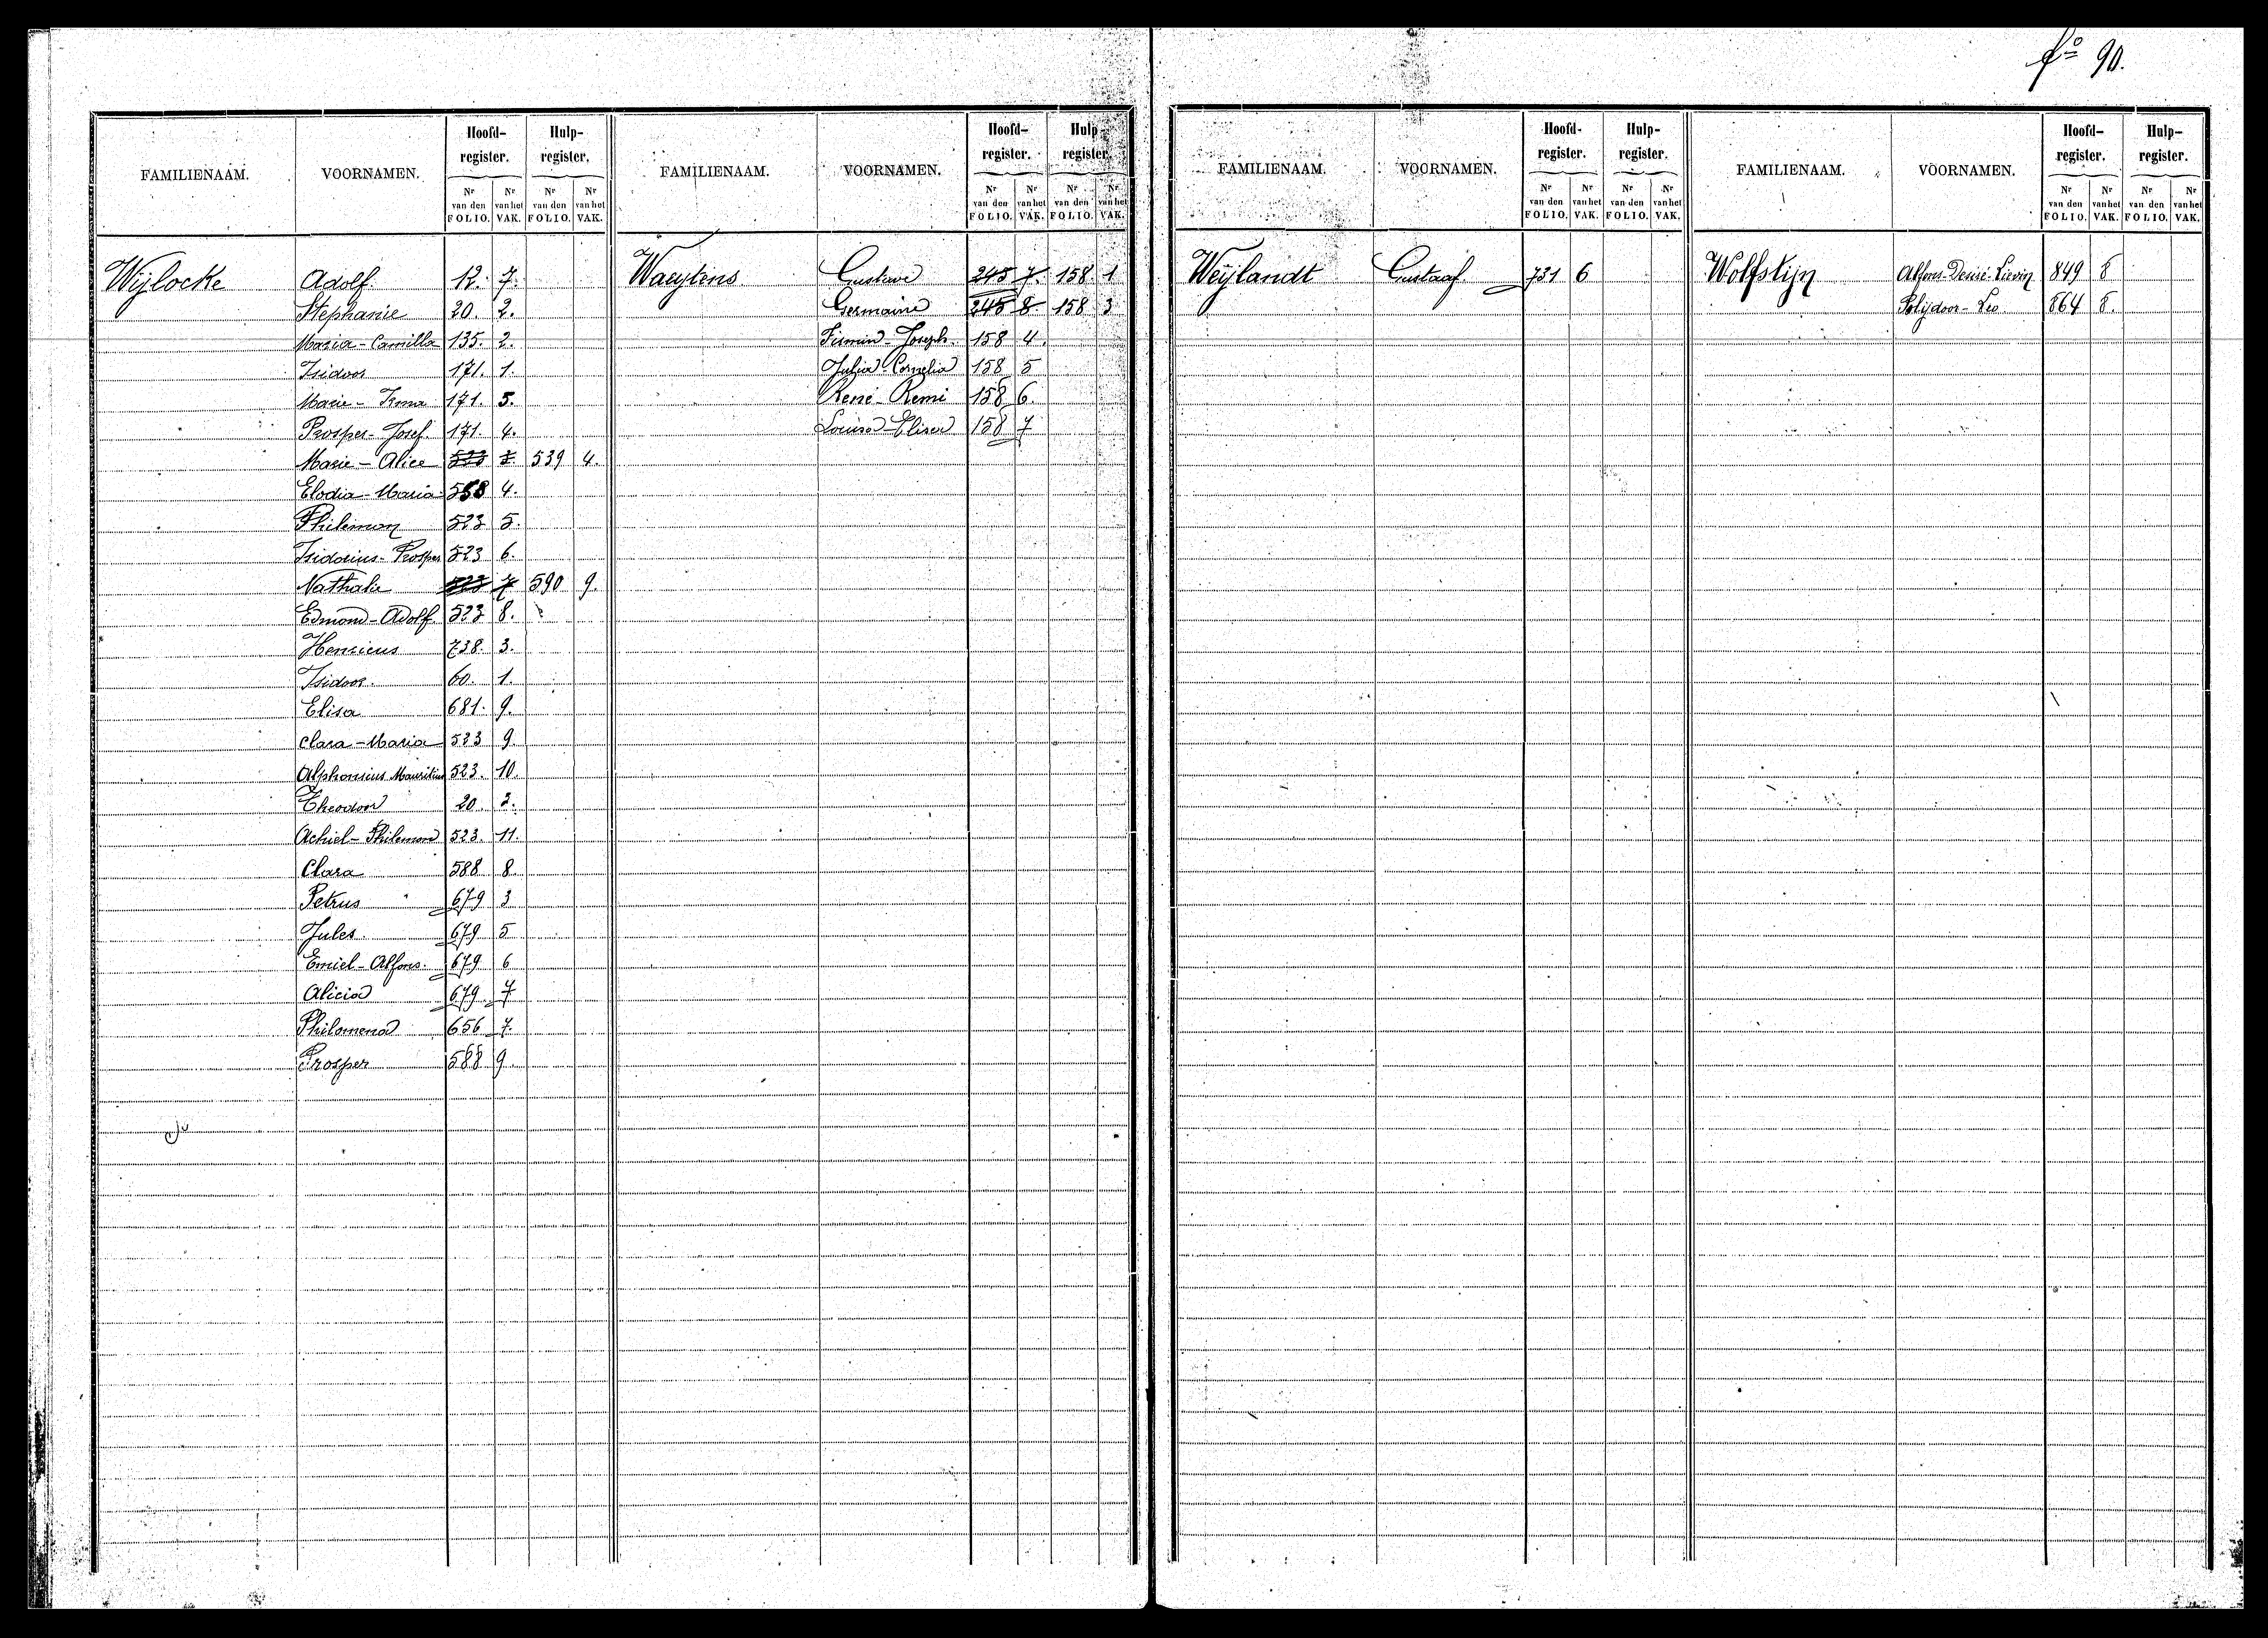 fº 90.
FAMILIENAAM. VOORNAMEN. Hoofd-register. Hulp-register. FAMILIENAAM. VOORNAMEN. Hoofd-register. Hulp-register.
Nr van den FOLIO. Nr van het VAK. Nr van den FOLIO. Nr van het VAK. Nr van den FOLIO. Nr van het VAK. Nr van den FOLIO. Nr van het VAK.
Wijlocke Adolf. 12. 7.
Stephanie 20. 2.
Maria-Camilla 135. 2.
Isidoor 171. 1.
Marie-Irma 171. 5.
Prosper-Josef. 171. 4.
Marie-Alice 539 4.
Elodia-Maria 4.
Philemon 523 5.
Isidorius-Prosper 523 6.
Nathalie 523 7 590 9.
Edmond-Adolf. 523 8.
Henricus 738. 3.
Isidoor. 60. 1.
Elisa 681. 9.
Clara-Maria 523 9.
Alphonsius Mauritius 523. 10.
Theodoor 20. 3.
Achiel-Philemon 523. 11.
Clara 588 8.
Petrus 679 3
Jules 679 5
Emiel-Alfons. 679 6
Alicia 679 7
Philomena 656 7.
Prosper 588 9.
Waeytens Gustave 245 7. 158 1
Germaine 245 8. 158 3
Firmin-Joseph. 158 4.
Julia-Cornelia 158 5
René-Remi 158 6
Louisa-Elisa 158 7
FAMILIENAAM. VOORNAMEN. Hoofd-register. Hulp-register. FAMILIENAAM. VOORNAMEN. Hoofd-register. Hulp-register.
Nr van den FOLIO. Nr van het VAK. Nr van den FOLIO. Nr van het VAK. Nr van den FOLIO. Nr van het VAK. Nr van den FOLIO. Nr van het VAK.
Weijlandt Gustaaf. 731 6
Wolfstijn Alfons-Desiré-Lievin 849 8
Polijdoor-Leo 864 8.